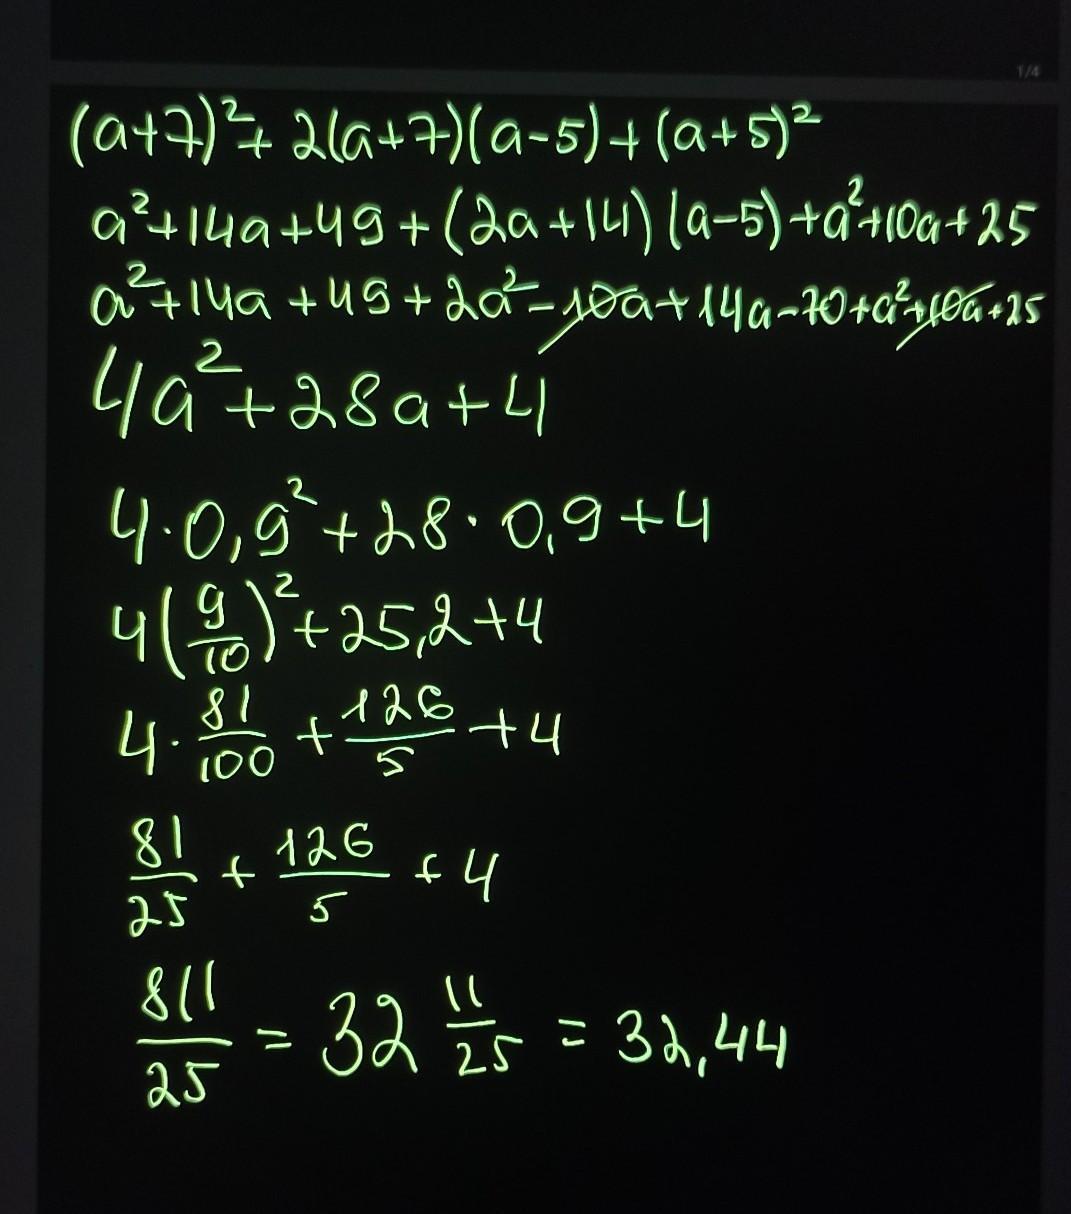 1/4
(a+7)²+ 2(a+7)(a-5)+(a+5)²
a²+14a+49+(2a+14)(a-5)+a²+10a+25
a²+14a+49+2a²-10a+14a-70+a²+10a+25
4a²+28a+4
4·0,9²+28·0,9+4
4(9/10)²+25,2+4
4·81/100+126/5+4
81/25+126/5+4
811/25=32 11/25=32,44